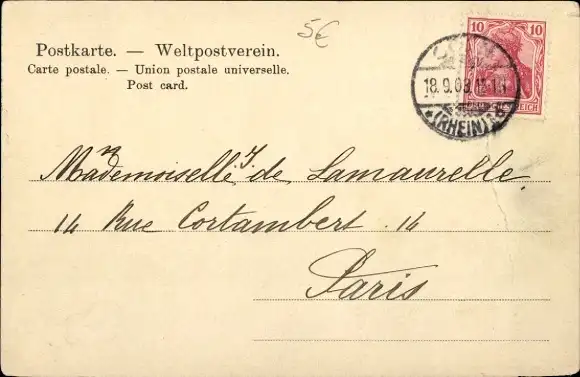 5€
10 10
REICH
18.9.03.
*(RHEIN)*
Postkarte. — Weltpostverein.
Carte postale. — Union postale universelle.
Post card.
Mademoiselle J. de Lamaurelle
14 Rue Cortambert. 14
Paris